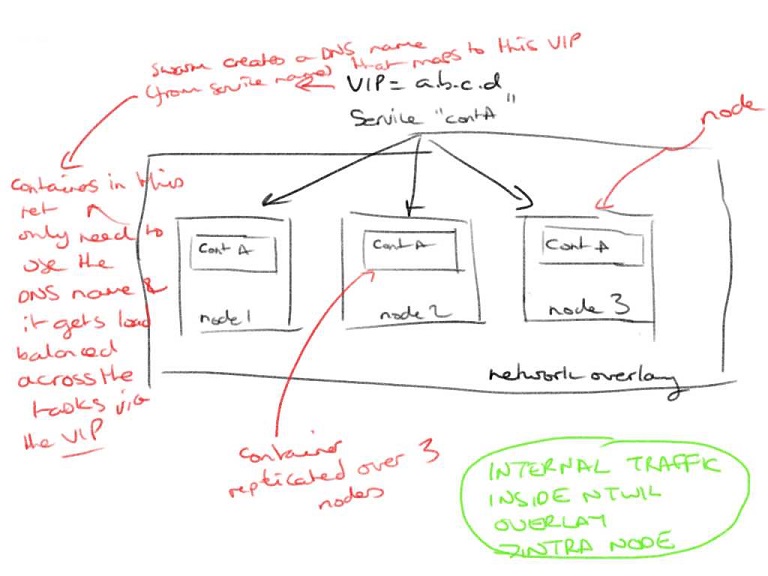 Swarm creates a DNS name
(from service name) that maps to this VIP
VIP = a.b.c.d
Service "contA"
node
Containers in this
net
only need to
use the
DNS name &
it gets load
balanced
across the
tasks via
the VIP
Cont A
node 1
Cont A
node 2
Cont A
node 3
network overlay
Container
replicated over 3
nodes
INTERNAL TRAFFIC
INSIDE NTWK
OVERLAY
INTRA NODE